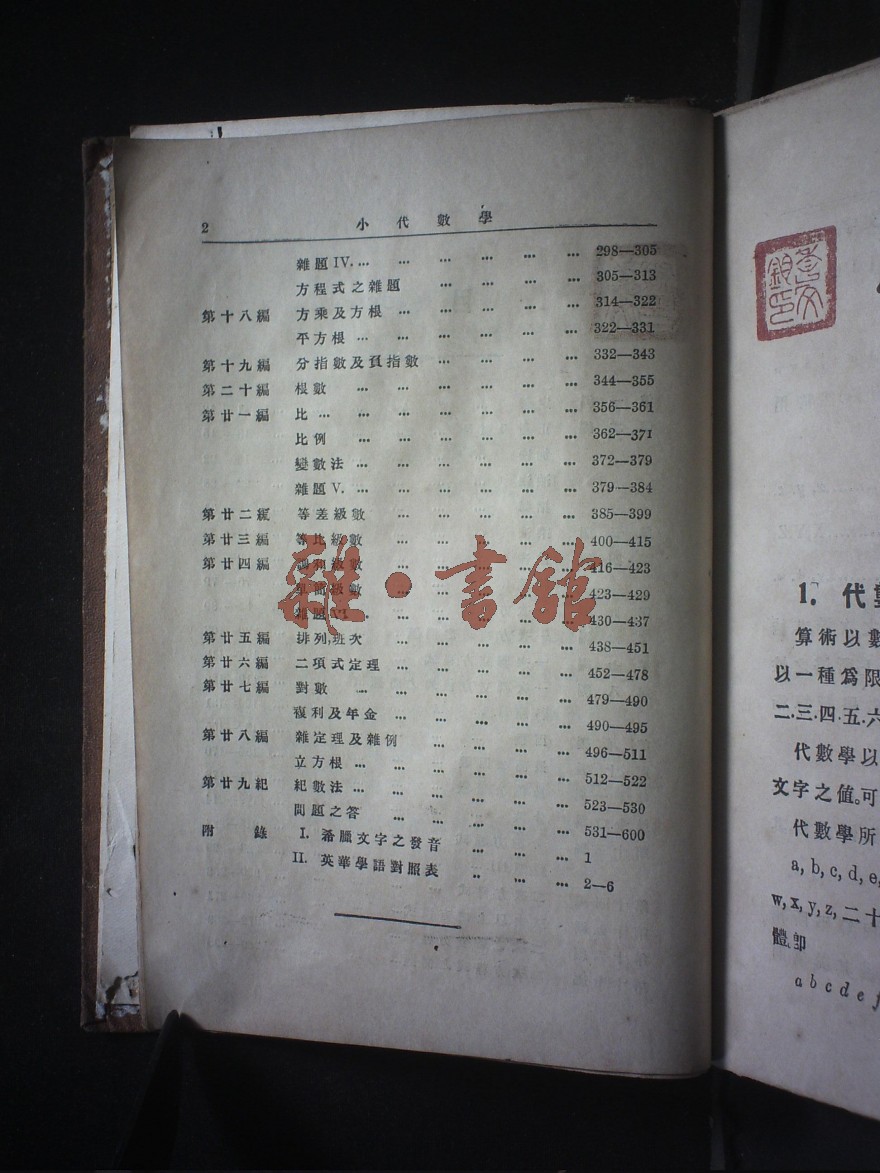 2 小代數學
雜題 IV. ... ... ... ... ... ... 298—305
方程式之雜題 ... ... ... ... 305—313
第十八編 方乘及方根 ... ... ... ... ... 314—322
平方根 ... ... ... ... ... ... 322—331
第十九編 分指數及負指數 ... ... ... ... 332—343
第二十編 根數 ... ... ... ... ... ... 344—355
第廿一編 比 ... ... ... ... ... ... 356—361
比例 ... ... ... ... ... ... 362—371
變數法 ... ... ... ... ... ... 372—379
雜題 V. ... ... ... ... ... ... 379—384
第廿二編 等差級數 ... ... ... ... ... 385—399
第廿三編 等比級數 ... ... ... ... ... 400—415
第廿四編 調和級數 ... ... ... ... ... 416—423
單簡級數 ... ... ... ... ... 423—429
雜題 VI. ... ... ... ... ... 430—437
第廿五編 排列,班次 ... ... ... ... ... 438—451
第廿六編 二項式定理 ... ... ... ... ... 452—478
第廿七編 對數 ... ... ... ... ... ... 479—490
複利及年金 ... ... ... ... ... 490—495
第廿八編 雜定理及雜例 ... ... ... ... 496—511
立方根 ... ... ... ... ... ... 512—522
第廿九紀 紀數法 ... ... ... ... ... ... 523—530
問題之答 ... ... ... ... ... 531—600
附錄 I. 希臘文字之發音 ... ... ... ... 1
II. 英華學語對照表 .. ... ... ... 2—6
雜·書館
1. 代
算術以數
以一種爲限
二.三.四.五.六
代數學以
文字之值。可
代數學所
a, b, c, d, e,
w, x, y, z, 二十
體,卽
a b c d e f